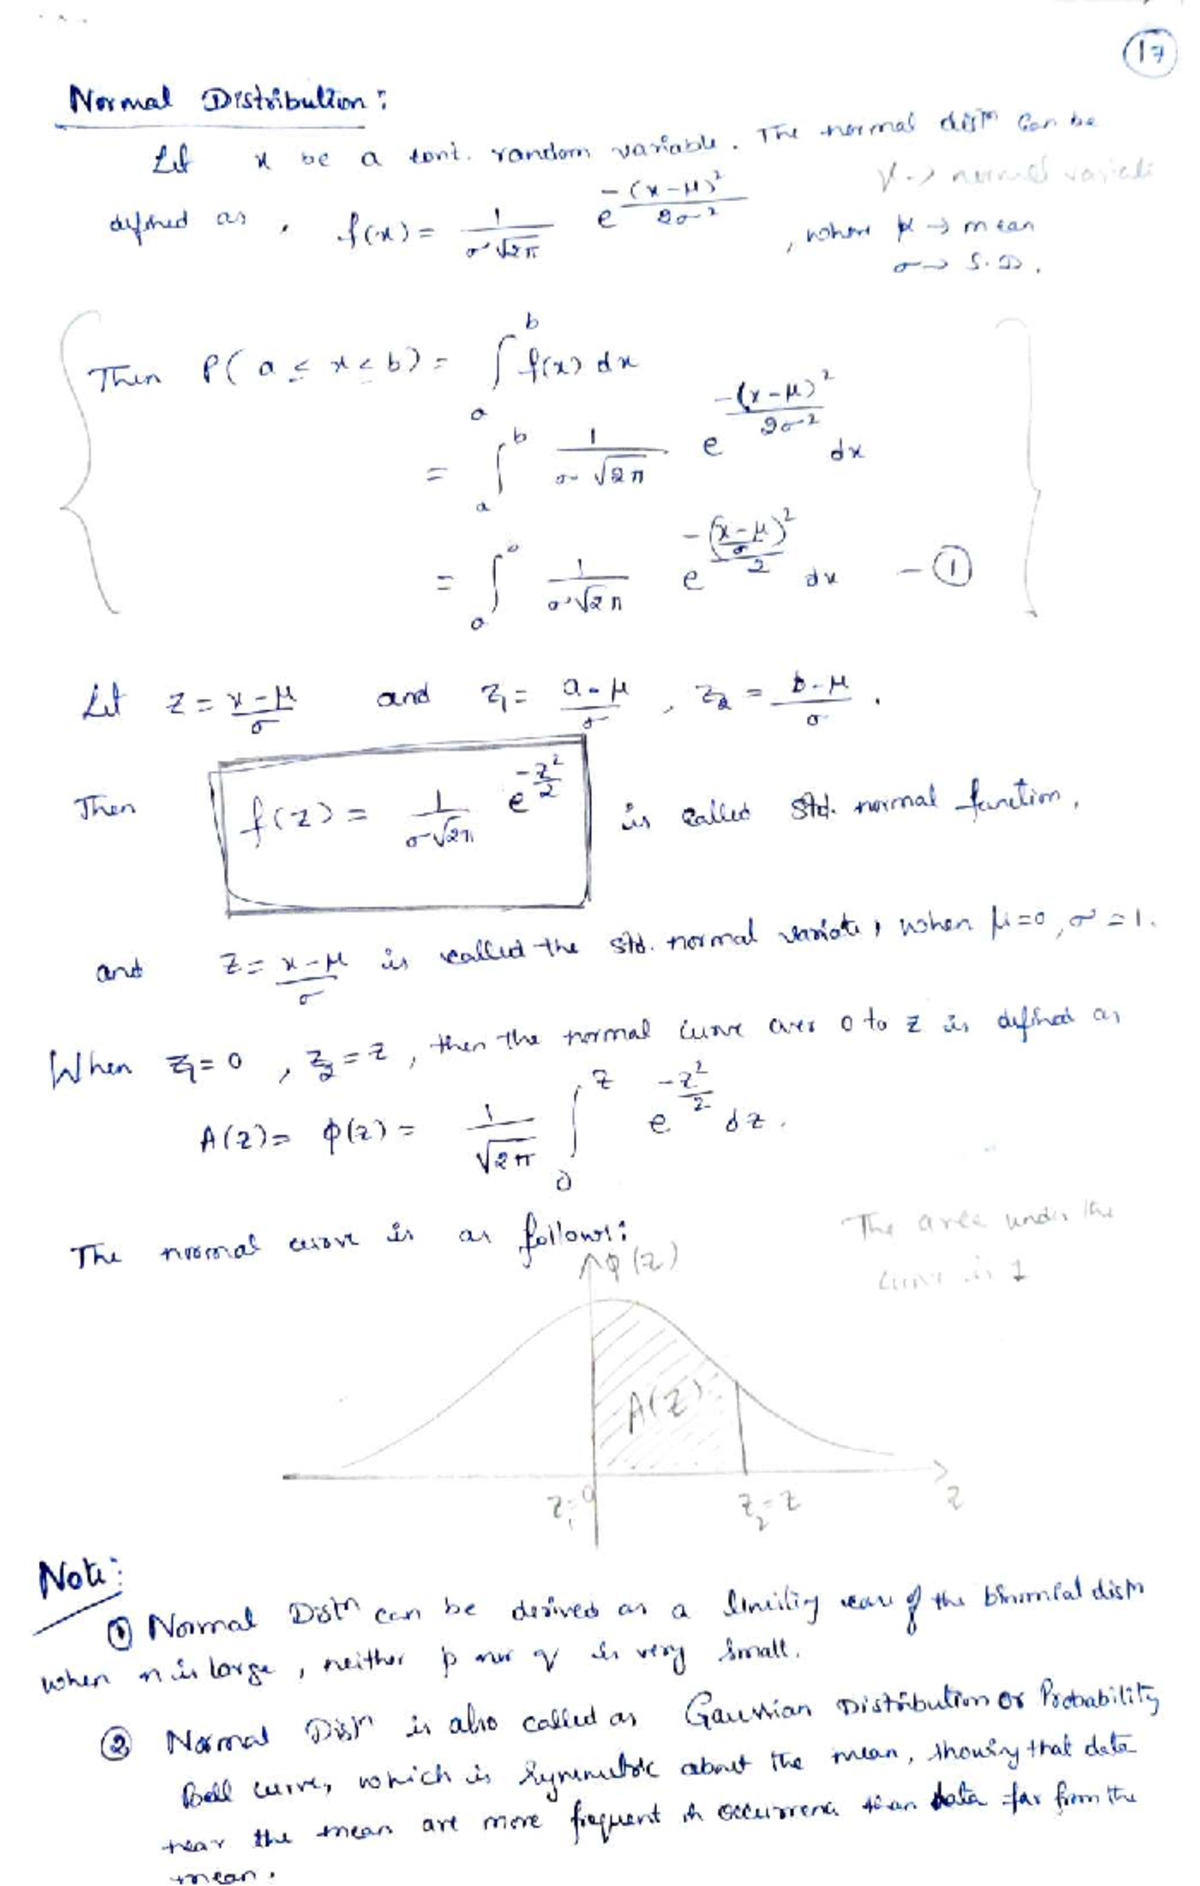 17
Normal Distribution:
Let x be a cont. random variable. The normal distn can be
x -> normal variate
defined as, f(x) = 1/(σ√2π) e^(-(x-μ)²/2σ²), where μ -> mean
σ -> S.D.
Then P(a ≤ x ≤ b) = ∫_a^b f(x) dx
= ∫_a^b 1/(σ√2π) e^(-(x-μ)²/2σ²) dx
= ∫_a^b 1/(σ√2π) e^(-((x-μ)/σ)²/2) dx - ①
Let z = (x-μ)/σ and z₁ = (a-μ)/σ, z₂ = (b-μ)/σ.
Then f(z) = 1/(σ√2π) e^(-z²/2) is called std. normal function,
and z = (x-μ)/σ is called the std. normal variate, when μ=0, σ=1.
When z₁=0, z₂=z, then the normal curve over 0 to z is defined as
A(z) = ϕ(z) = 1/√2π ∫_0^z e^(-z²/2) dz.
The normal curve is as follows:
The area under the
curve is 1
ϕ(z)
A(z)
z₁=0 z₂=z z
Note:
① Normal Distn can be derived as a limiting case of the binomial distn
when n is large, neither p nor q is very small.
② Normal Distn is also called as Gaussian Distribution or Probability
Bell curve, which is symmetric about the mean, showing that data
near the mean are more frequent in occurrence than data far from the
mean.